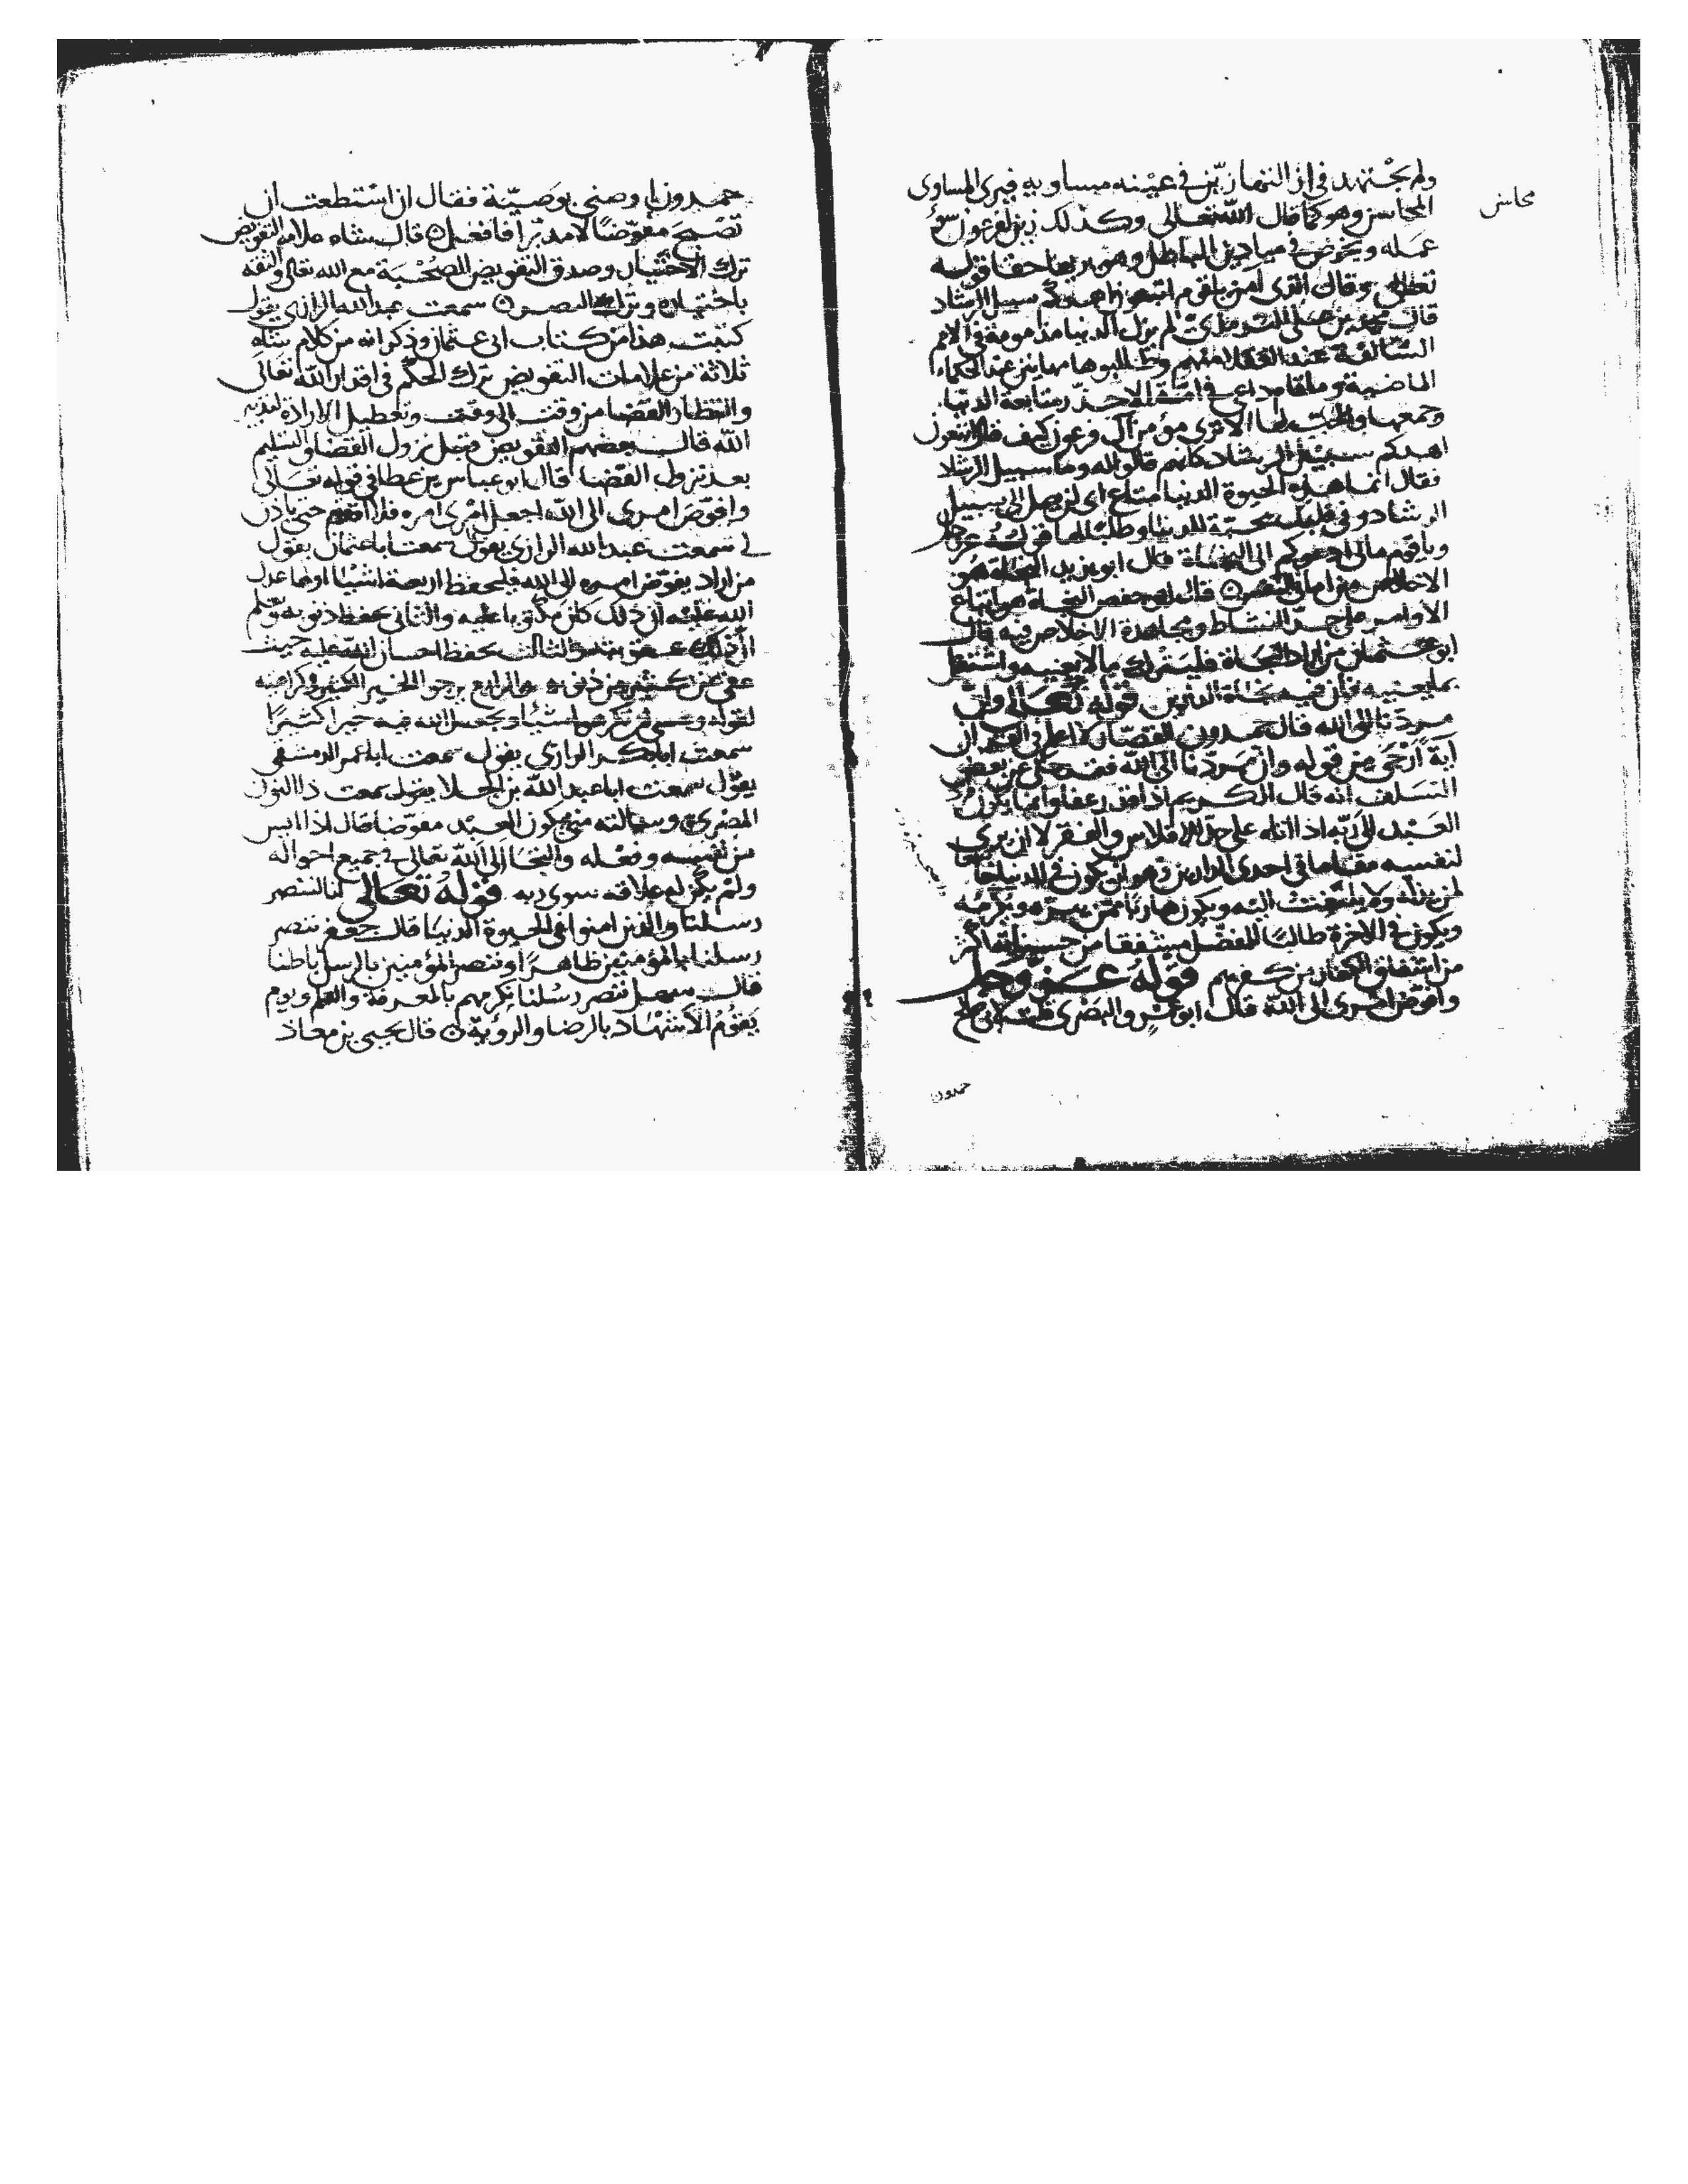 ولم يجتهد في ازالتها زين في عينه مساويه فيرى المساوى
محاسن
المحاسن وهو كما قال الله تعالى وكذلك زين لفرعون سوء
عمله ويخوض في ميادين الباطل وهو يراها حقا قوله
تعالى وقال الذي امن يا قوم اتبعون اهدكم سبيل الرشاد
قال محمد بن على الترمذي لم يزل الدنيا مذمومة في الامم
السالفة عند العقلا منهم وطالبوها مهانين عند الحكماء
الماضية وما قام داعي في امة الا حذر متابعة الدنيا
وجمعها والحب لها الا ترى مؤمن آل فرعون كيف قال اتبعون
اهدكم سبيل الرشاد كانهم قالوا له وما سبيل الرشاد
فقال انما هذه الحيوة الدنيا متاع اى لن تصل الى سبيل
الرشاد وفي قلبك محبة للدنيا وطلب لها قوله عز وجل
ويا قوم مالى ادعوكم الى النجاة قال ابو يزيد النجاة هو
الاخلاص من قال ابو حفص النجاة هو اتباع
الاوامر على حد النشاط ومجاهدة الاخلاص فيه قال
ابو عثمان من اراد النجاة فليترك ما لا يعنيه واشتغل
بما يعنيه فان فيه نجاة الدارين قوله تعالى وان
مردنا الى الله قال حمدون القصار لا اعلم في القران
اية ارجى من قوله وان مردنا الى الله فقد حكى عن بعض
السلف انه قال الكريم اذا قدر عفا وانما يكون مرد
العبد الى ربه اذا اتاه على حد الافلاس والفقر لا ان يرى
لنفسه مقاما في احدى الدارين وهو ان يكون في الدنيا خاشعا
لمن يذله ولا يلتفت اليه ويكون هاربا ممن يبره ويكرمه
ويكون في الاخرة طالبا للفضل مشفقا من حسناته اكثر
من اشفاق الكفار من كفرهم قوله عز وجل
وافوض امرى الى الله قال ابو عمرو البصرى قلت لابي صالح
حمدون
حمدون يا وصني بوصية فقال ان استطعت ان
تصبح مفوضا لا مدبرا فافعل قال شاه علامة التفويض
ترك الاختيار وصدق التفويض الصحبة مع الله تعالى والثقة
باختياره وترك سمعت عبد الله الرازي يقول
كتبت هذا من كتاب ابى عثمان وذكر انه من كلام شاه
ثلاثة من علامات التفويض ترك الحكم في اقدار الله تعالى
وانتظار القضا من وقت الى وقت وتعطيل الارادة لتدبير
الله قال بعضهم التفويض قبل نزول القضا والتسليم
بعد نزول القضا قال ابو عباس بن عطا في قوله تعالى
وافوض امرى الى الله اجعل امرى امره فلا اقدم حتى ياذن
لى سمعت عبد الله الرازي يقول سمعت ابا عثمان يقول
من اراد يفوض امره الى الله فليحفظ اربعة اشيا اولها عدل
الله عليه ان ذلك كان مكتوبا عليه والثانى يحفظ ذنوبه يعلم
ان ذلك عقوبته والثالث يحفظ احسان الله عليه حيث
عفى عن كثير من ذنوبه والرابع يرجو الخير الكثير في كراهيته
لقوله وعسى ان تكرهوا شيئا ويجعل الله فيه خيرا كثيرا
سمعت ابا بكر الرازي يقول سمعت ابا عمر الدمشقي
يقول سمعت ابا عبد الله بن الجلا يقول سمعت ذا النون
المصري وسالته متى يكون العبد مفوضا قال اذا ايس
من نفسه وفعله والتجا الى الله تعالى في جميع احواله
ولم يكن له علاقه سوى ربه قوله تعالى انا لننصر
رسلنا والذين امنوا في الحيوة الدنيا قال جعفر ننصر
رسلنا بالمؤمنين ظاهرا وننصر المؤمنين بالرسل باطنا
قال سهل ننصر رسلنا نكرمهم بالمعرفة والعلم ويوم
يقوم الاشهاد بالرضا والرؤية قال يحيى بن معاذ